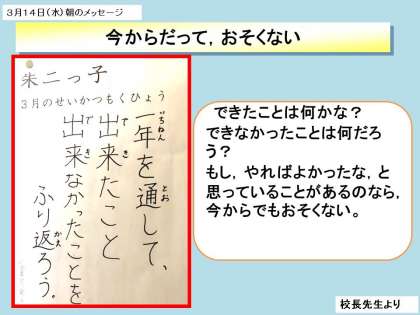 3月14日(水)朝のメッセージ
今からだって，おそくない
朱二っ子
3月のせいかつもくひょう
一年を通して、
出来たこと
出来なかったことを
ふり返ろう。
できたことは何かな？
できなかったことは何だろ
う？
もし，やればよかったな，と
思っていることがあるのなら，
今からでもおそくない。
校長先生より